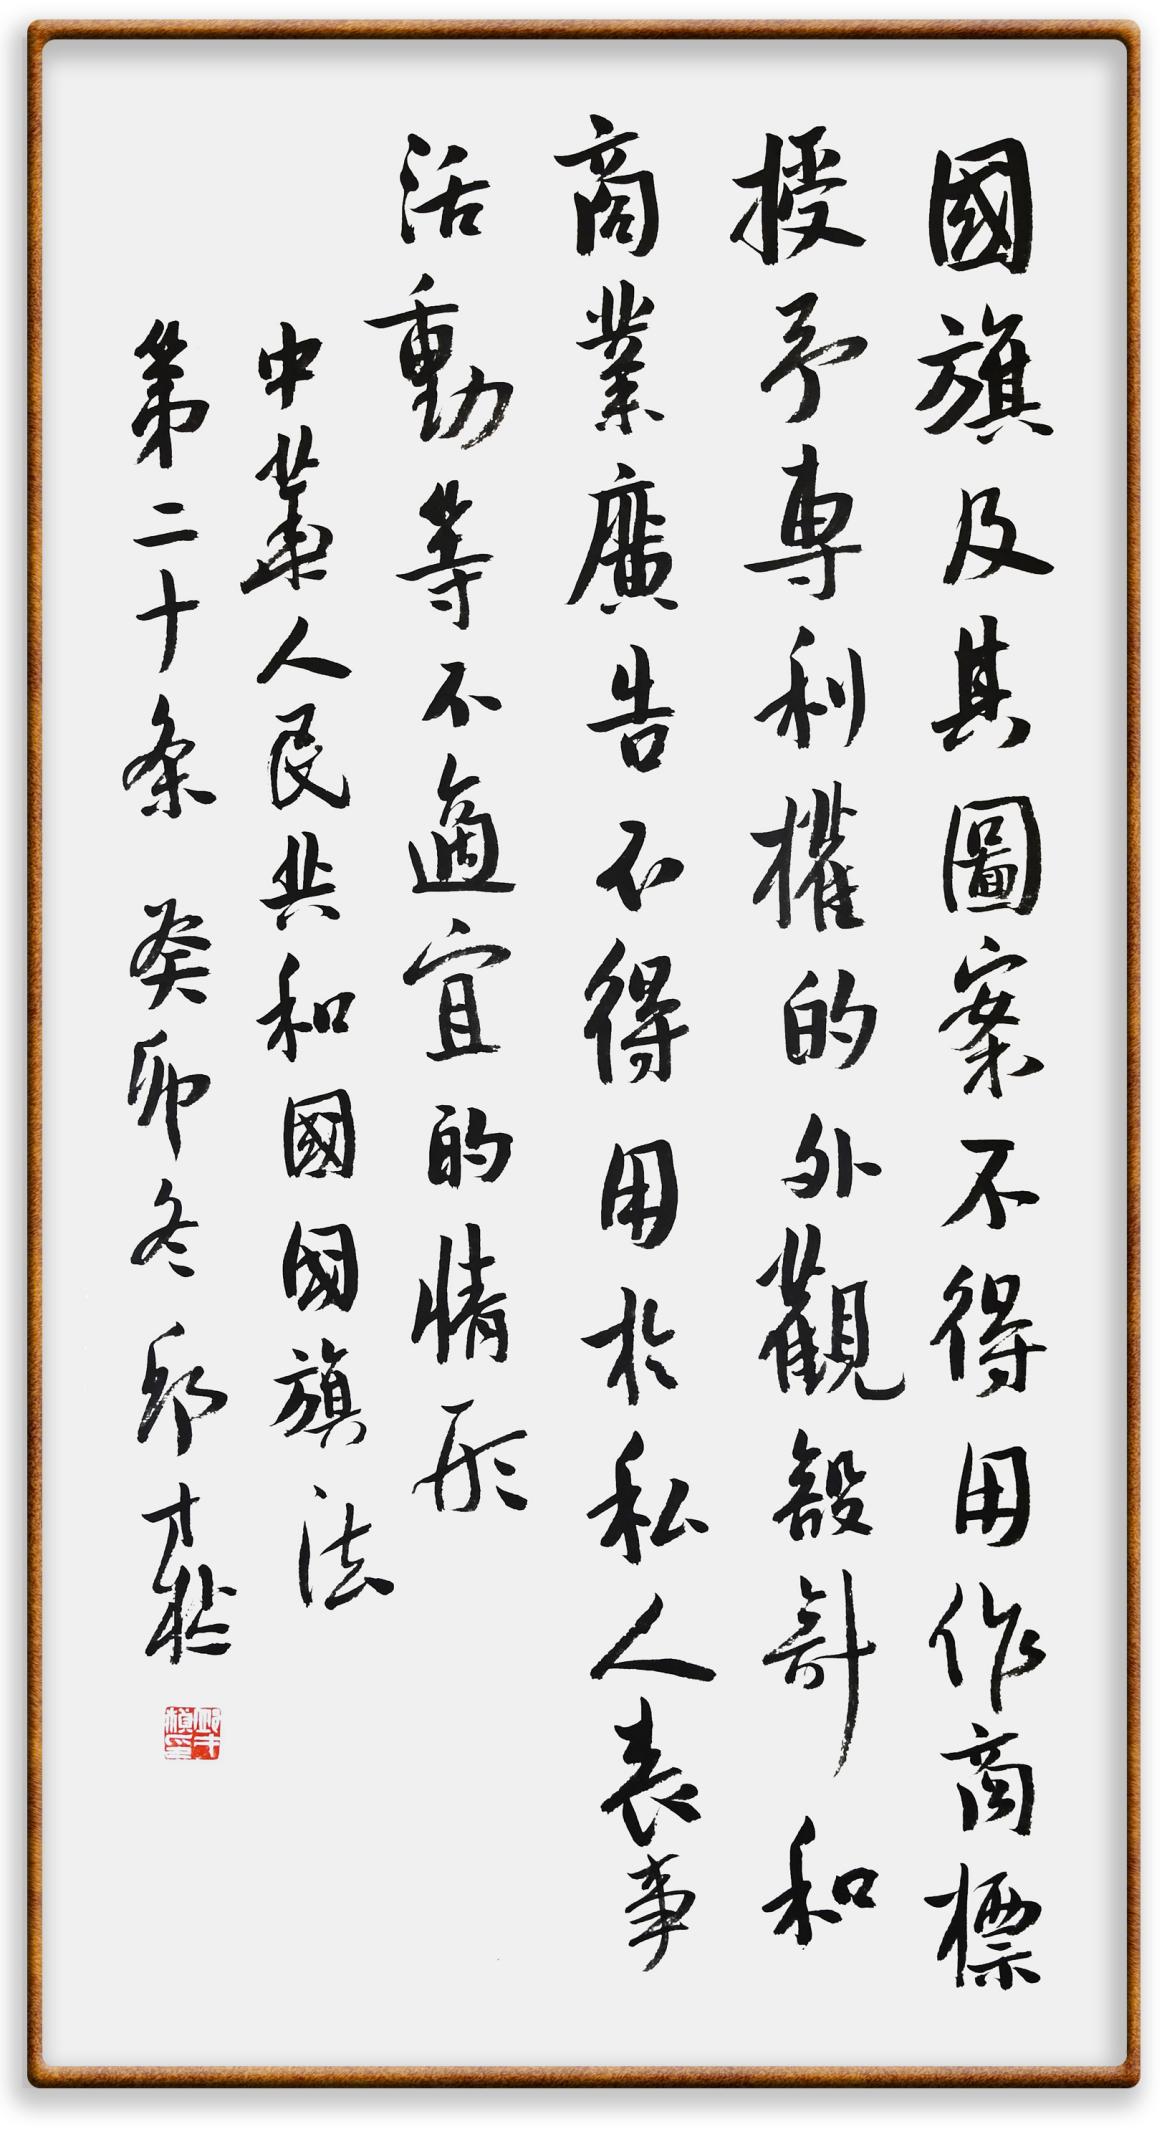 國旗及其圖案不得用作商標
授予專利權的外觀設計和
商業廣告不得用於私人喪事
活動等不適宜的情形
中華人民共和國國旗法
第二十条 癸卯冬 邱才楨
邱才楨印